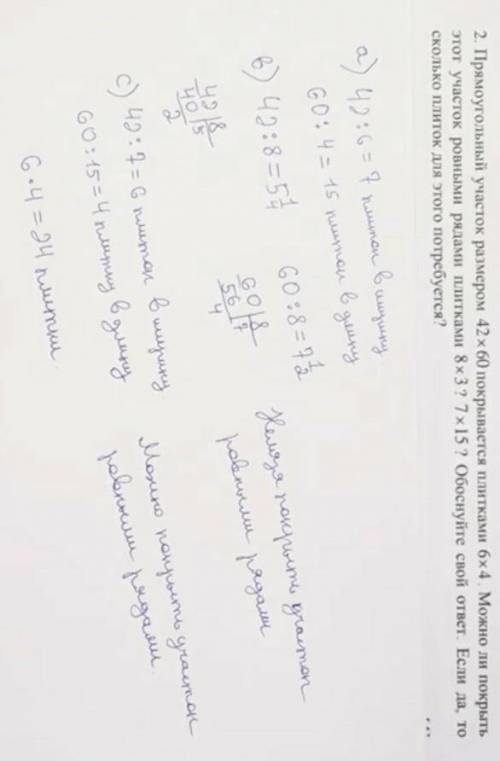 2. Прямоугольный участок размером 42×60 покрывается плитками 6×4. Можно ли покрыть
этот участок ровными рядами плитками 8×3? 7×15? Обоснуйте свой ответ. Если да, то
сколько плиток для этого потребуется?
а) 42:6=7 плиток в ширину
60:4=15 плиток в длину
в) 42:8=5 1/4
42|8
40|5
2
60:8=7 1/2
60|8
56|7
4
Нельзя покрыть участок
ровными рядами
с) 42:7=6 плиток в ширину
60:15=4 плитки в длину
Можно покрыть участок
ровными рядами
6·4=24 плитки.